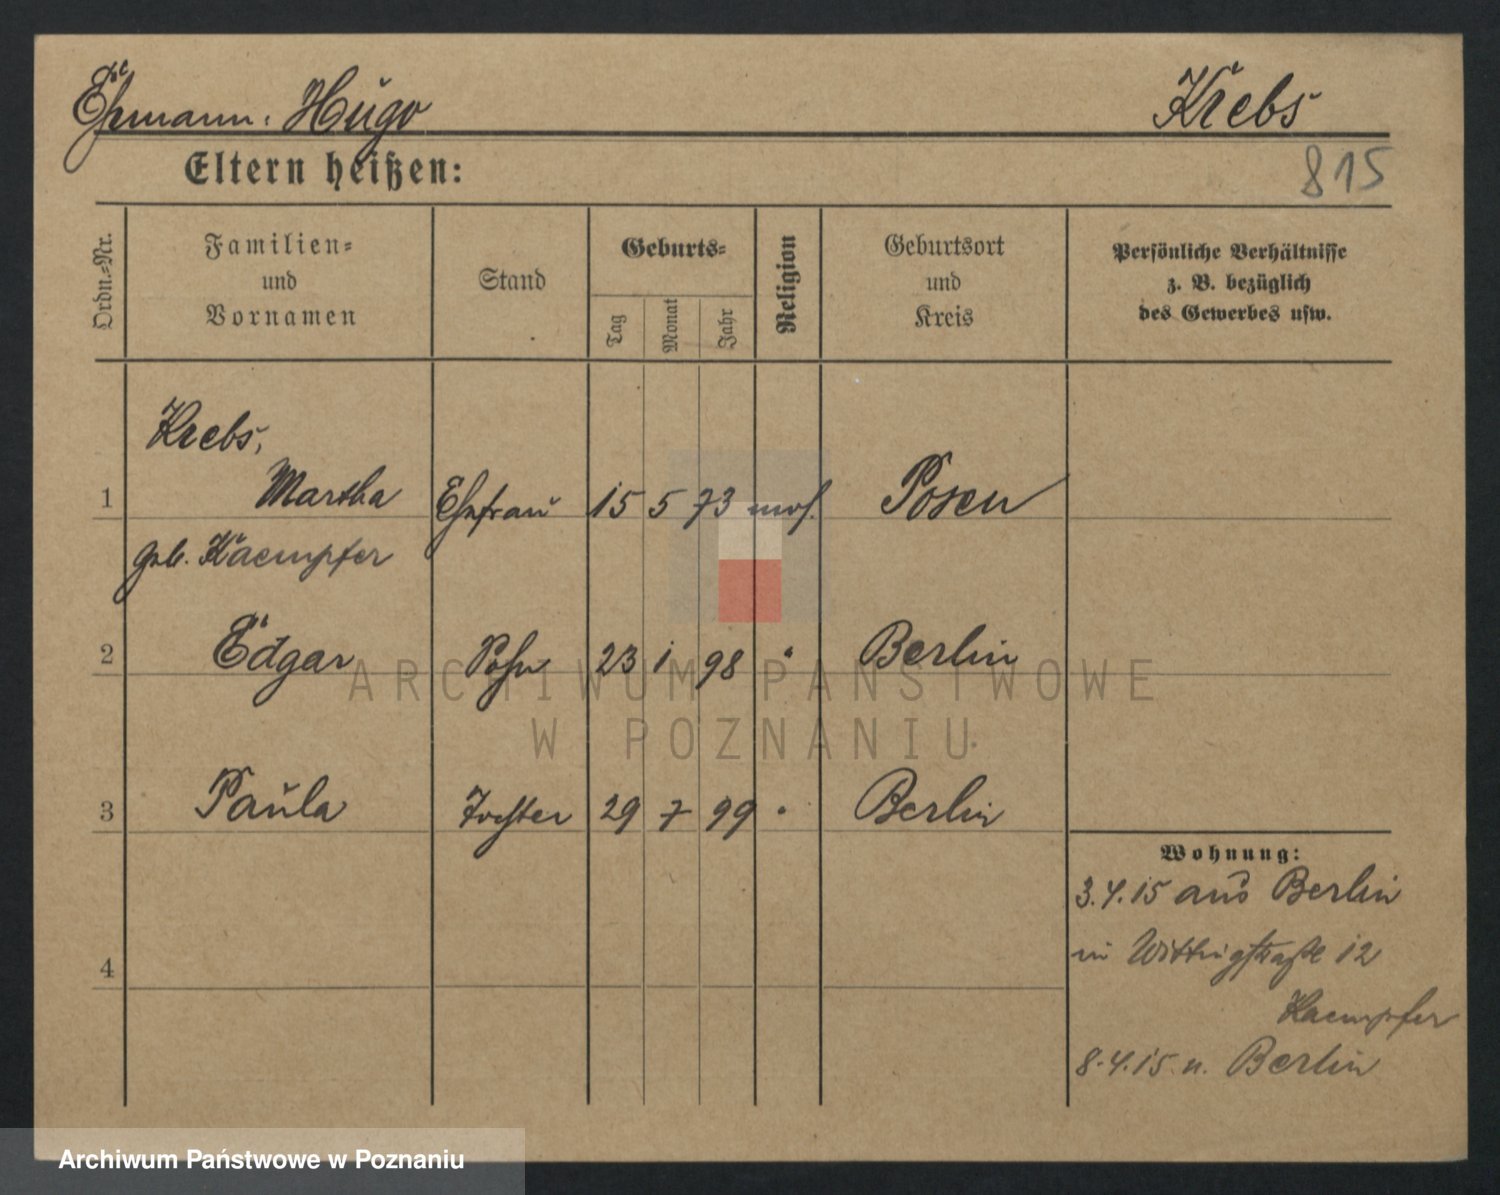 Ehemann: Hugo Krebs
815
Eltern heißen:
Ordn.=Nr.
Familien=
und
Vornamen
Stand
Geburts=
Tag
Monat
Jahr
Religion
Geburtsort
und
Kreis
Persönliche Verhältnisse
z. B. bezüglich
des Gewerbes usw.
Krebs,
1 Martha Ehefrau 15 5 73 mos. Posen
geb. Kaempfer
2 Edgar Sohn 23 1 98 " Berlin
3 Paula Tochter 29 7 99 " Berlin
4
Wohnung:
3.4.15 aus Berlin
in Wittingstraße 12
Kaempfer
8.4.15 n. Berlin
ARCHIWUM PAŃSTWOWE
W POZNANIU
Archiwum Państwowe w Poznaniu